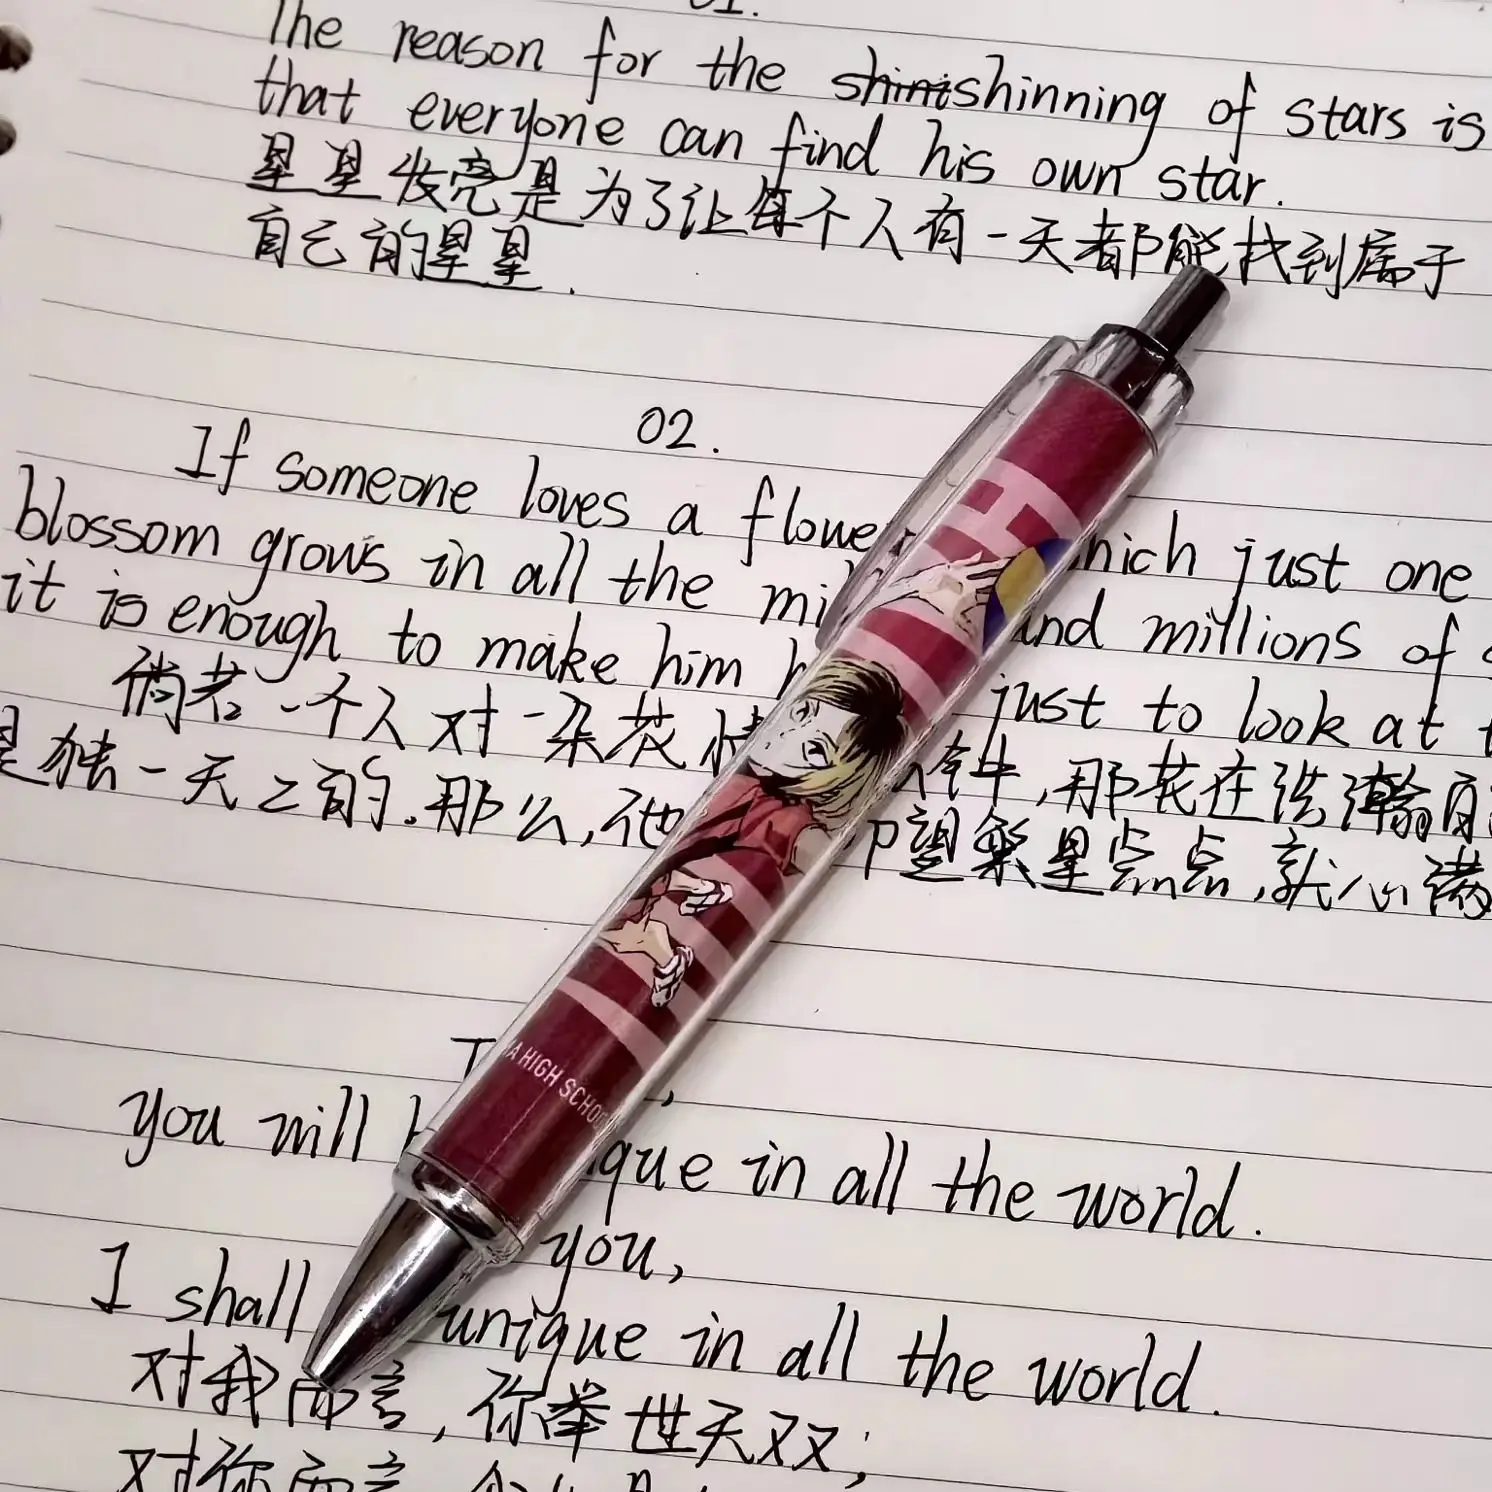 01.
The reason for the shinishinning of stars is
that everyone can find his own star.
星星发亮是为了让每个人有一天都能找到属于
自己的星星.
02.
If someone loves a which just one
blossom grows in all the and millions of
it is enough to make him just to look at
倘若一个人对一朵花情 钟,那花在浩瀚的
是独一无二的.那么,他 仰望繁星点点,就心满
you will in all the world.
you,
I shall unique in all the world.
对我而言,你举世无双;
对你而言,
A HIGH SCHOO